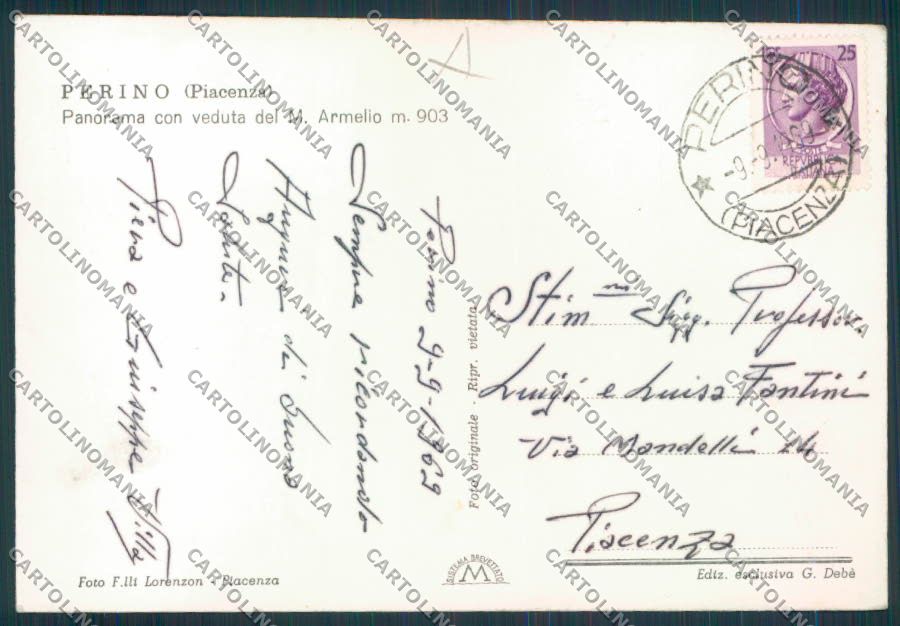 PERINO (Piacenza)
Panorama con veduta del M. Armelio m. 903
25
POSTE
REPVBBLICA
ITALIANA
PERINO
-9.-9.1969
(PIACENZA)
Perino 9-9-1969
Sempre ricordando
Auguri di buona
Salute.
Piera e Giuseppe Villa
Foto originale - Ripr. vietata
Stim mi Sigg. Professori
Luigi e Luisa Fantini
Via Mandelli 14
Piacenza
Foto F.lli Lorenzon - Piacenza
SISTEMA BREVETTATO
M
Ediz. esclusiva G. Debè
CARTOLINOMANIA